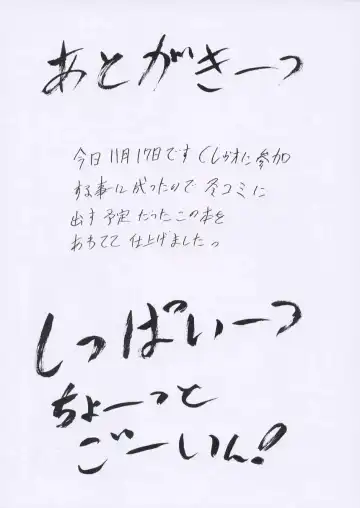 あとがきーっ
今日11月17日です くしかわに参加
する事に成ったので 冬コミに
出す予定だったこの本を
あわてて仕上げましたっ
しっぱいーっ
ちょーっと
ごーいん!